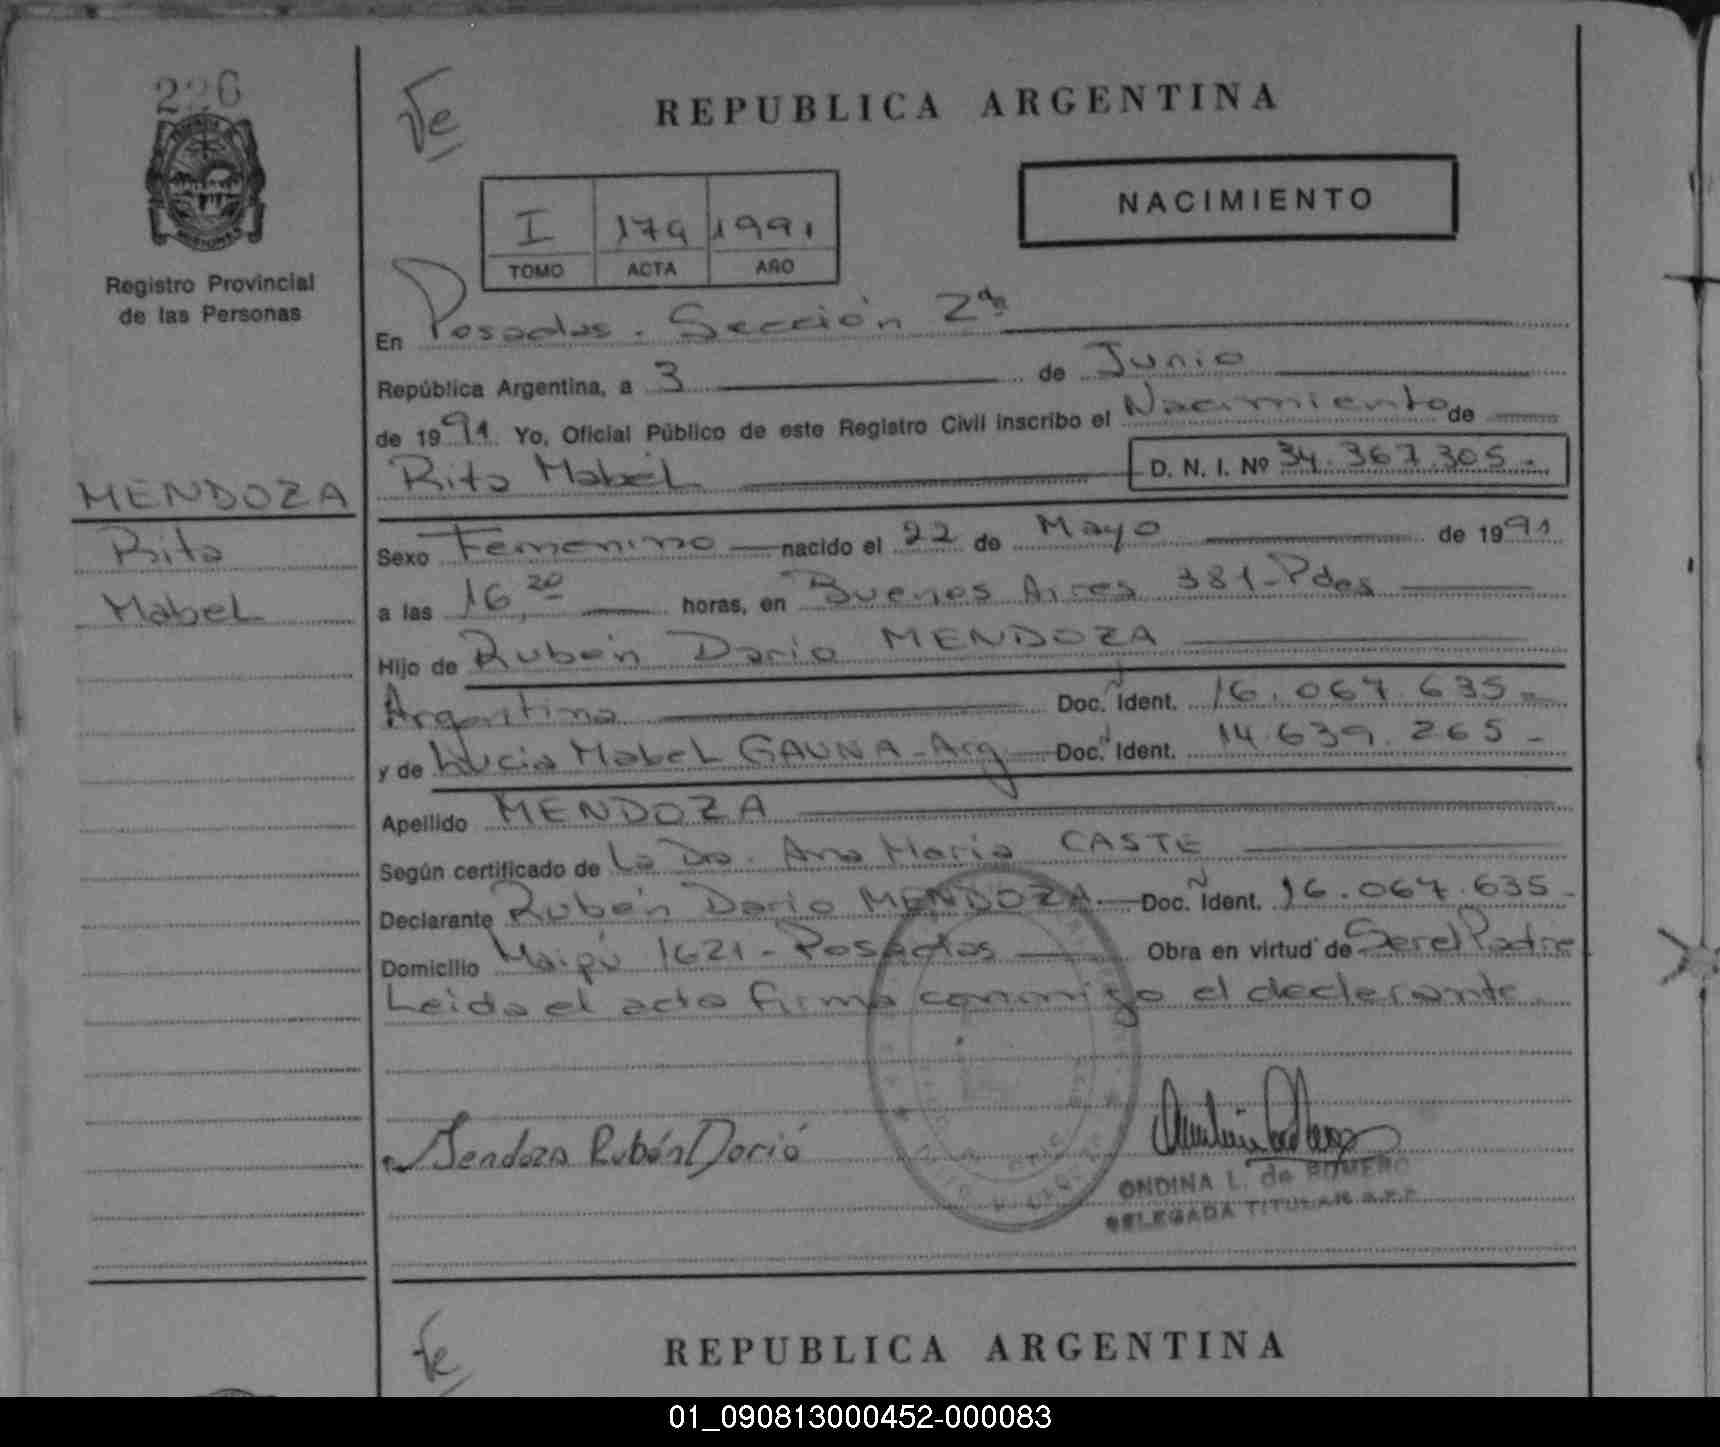 226
Registro Provincial
de las Personas
MENDOZA
Rita
Mabel
REPUBLICA ARGENTINA
I 179 1991
TOMO ACTA AÑO
NACIMIENTO
En Posadas. Sección 2da
República Argentina, a 3 de Junio
de 1991 Yo, Oficial Público de este Registro Civil inscribo el Nacimiento de
Rita Mabel D. N. I. Nº 34.367.305.-
Sexo Femenino nacido el 22 de Mayo de 1991
a las 16,20 horas, en Buenos Aires 381-Pdas
Hijo de Rubén Dario MENDOZA
Argentino Doc. Ident. 16.067.635-
y de Lucia Mabel GAUNA-Arg Doc. Ident. 14.639.265-
Apellido MENDOZA
Según certificado de La Dra. Ana Maria CASTE
Declarante Rubén Dario MENDOZA.- Doc. Ident. 16.067.635-
Domicilio Maipú 1621-Posadas Obra en virtud de Ser el Padre
Leida el acta firma conmigo el declarante
Mendoza Rubén Dario
ONDINA L. de ROMERO
DELEGADA TITULAR R.P.P.
REPUBLICA ARGENTINA
01_090813000452-000083